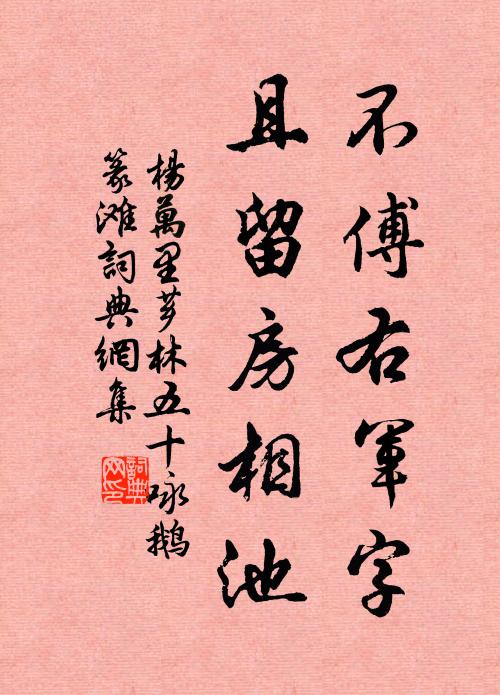 不傅右軍字
且留房相池
楊萬里芗林五十咏鵝
篆滩詞典網集
詞典网印